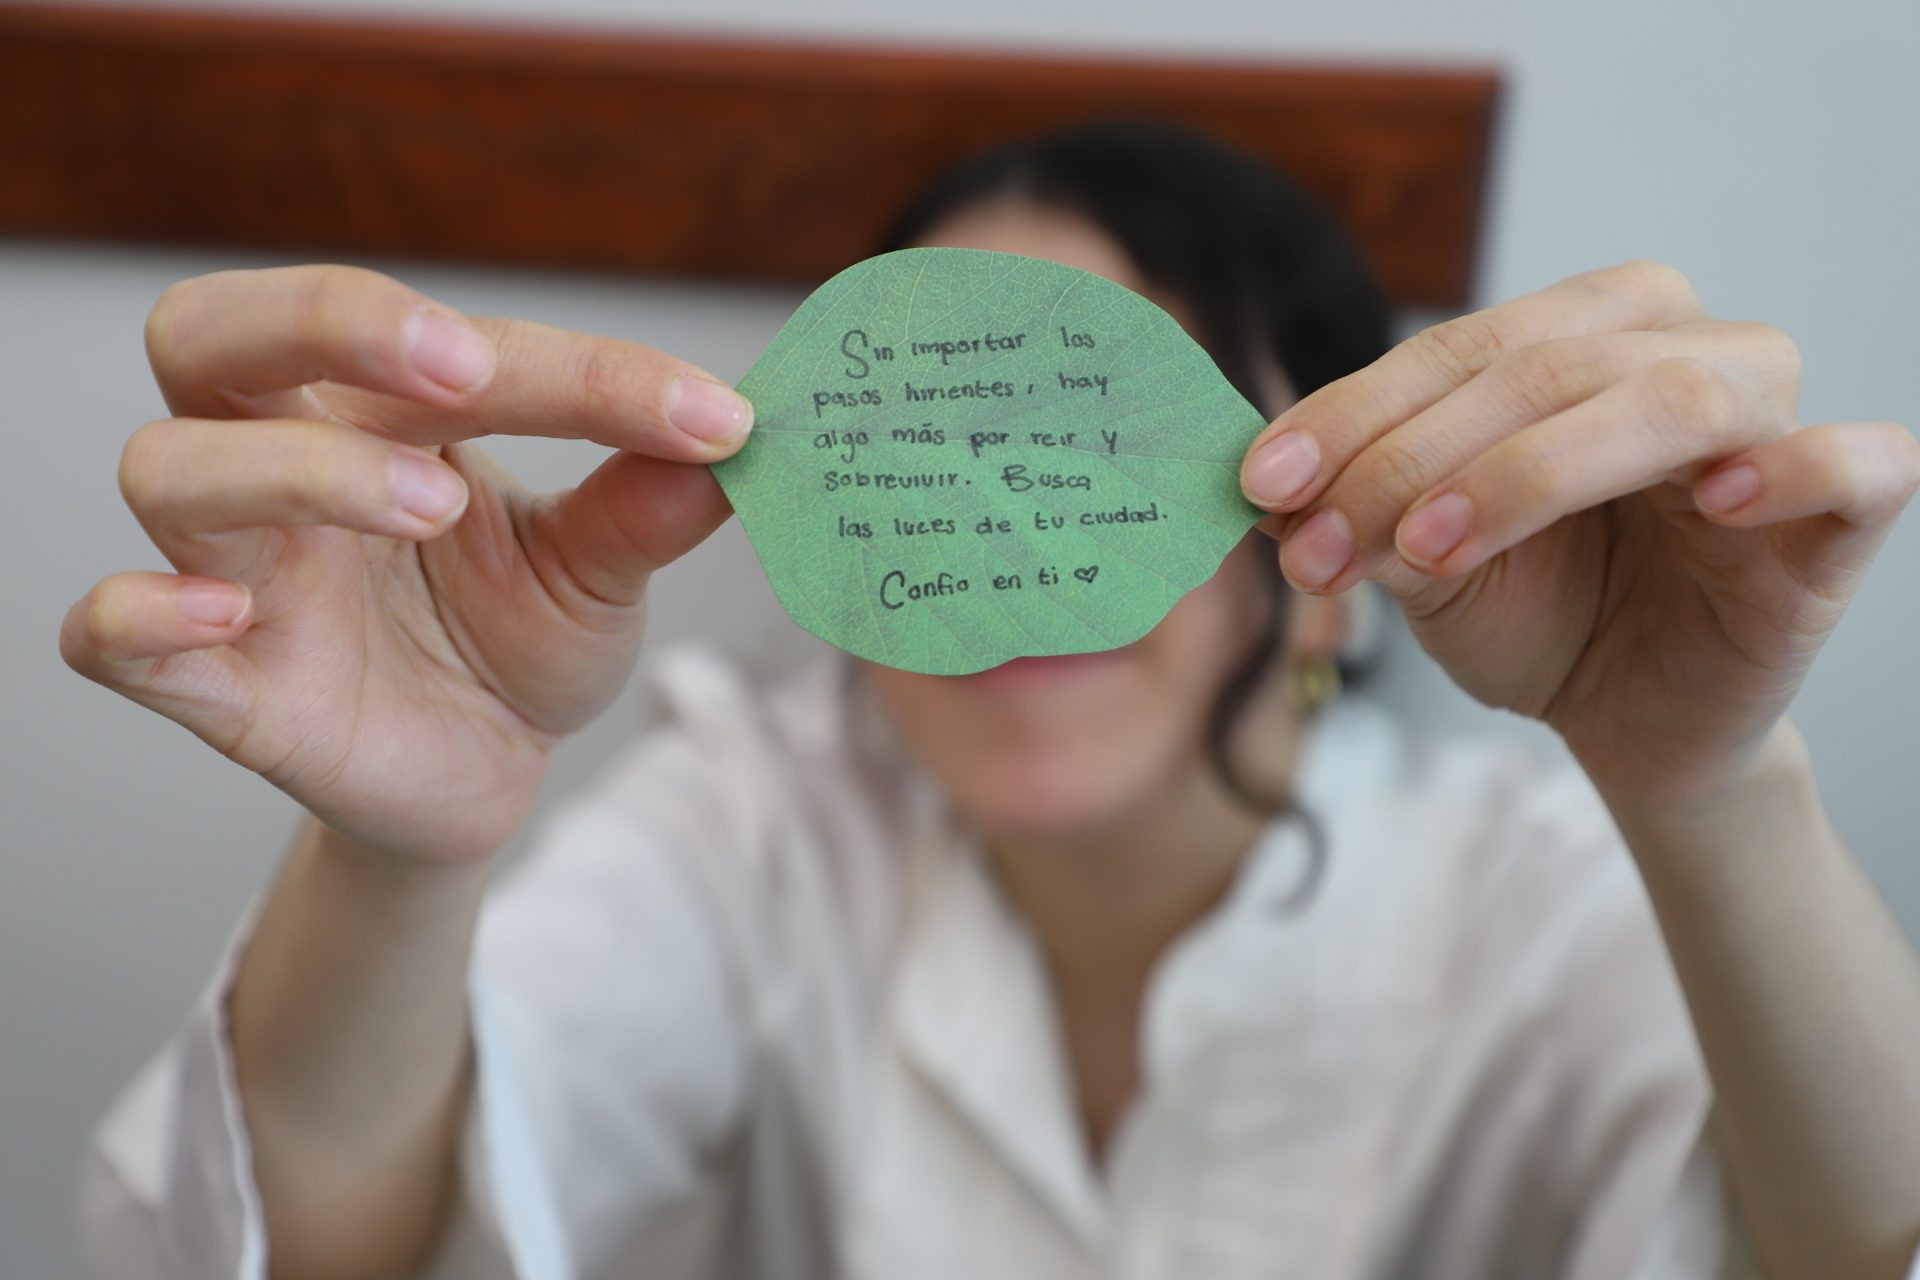 Sin importar los
pasos hirientes, hay
algo más por reir y
sobrevivir. Busca
las luces de tu ciudad.
Confio en ti ♡